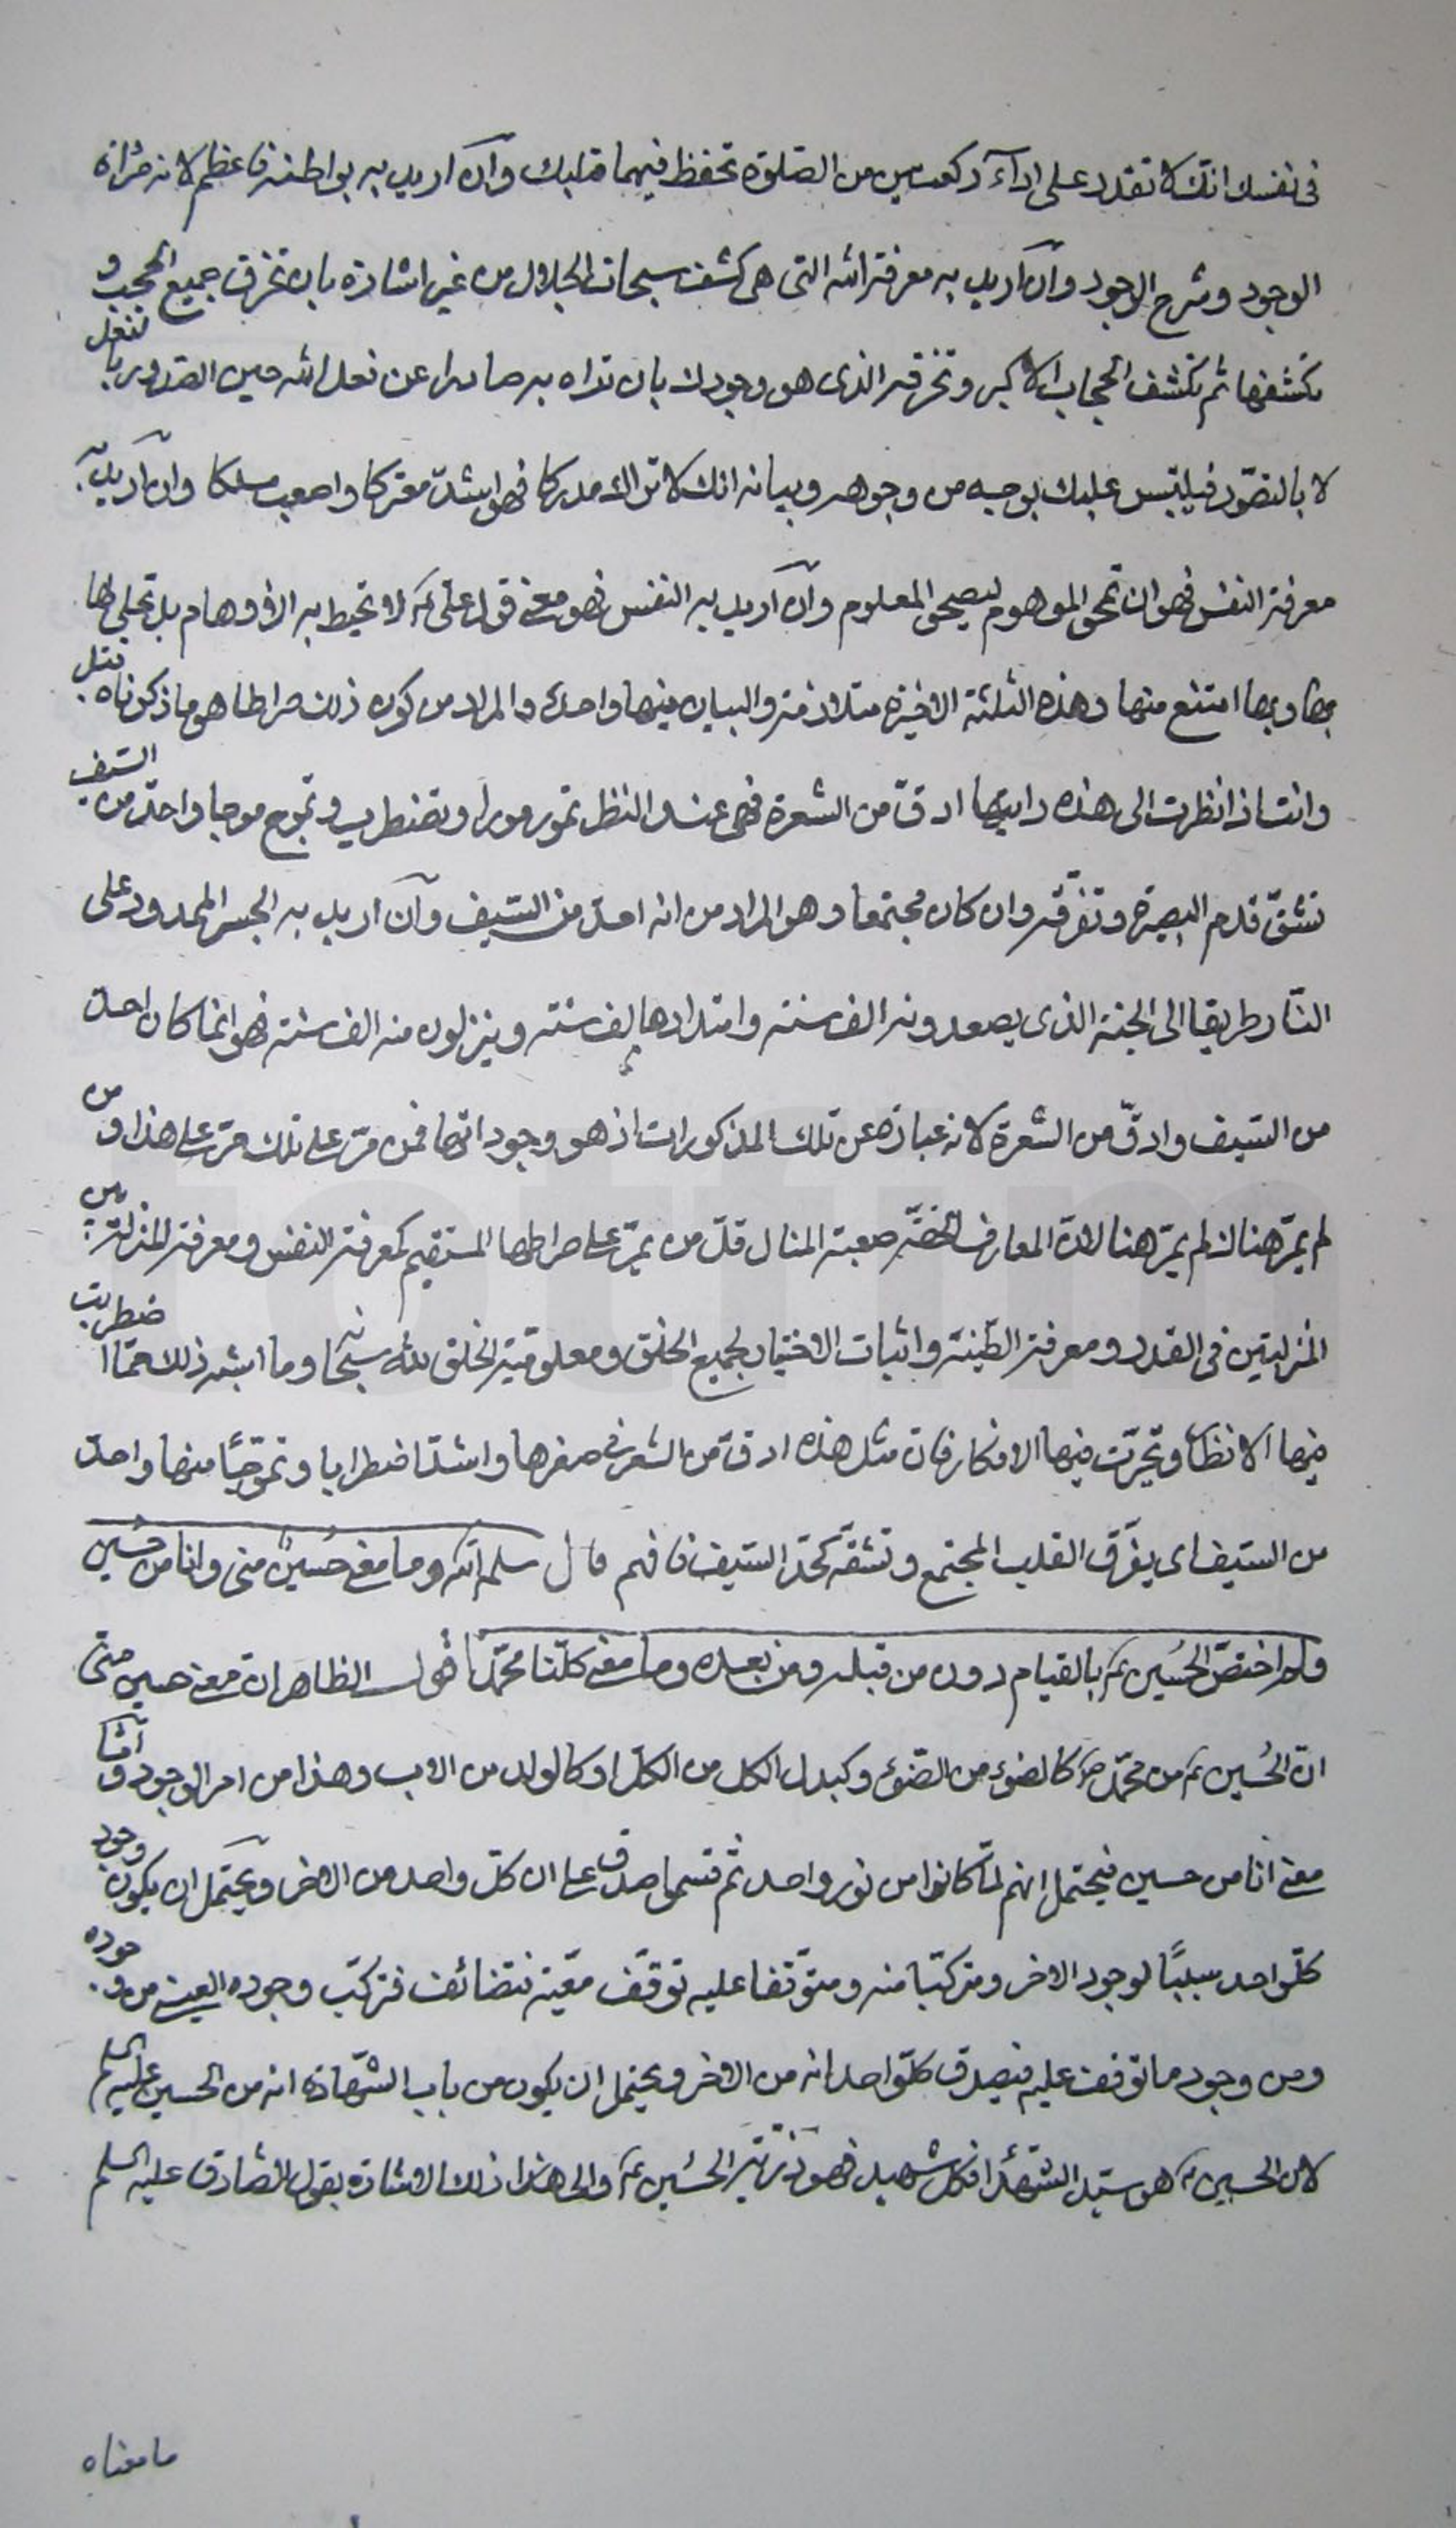 فى نفسك انك لا تقدر على اداء ركعتين من الصلوة تحفظ فيهما قلبك وان اريد به بواطنه فاعظم لانه مرٔاة
الوجود وشرح الوجود وان اريد به معرفة الله التى هى كشف سبحات الجلال من غير اشارة بان تخرق جميع الحجب و
تكشفها ثم تكشف الحجاب الاكبر وتخرقه الذى هو وجودك بان تراه به صادرا عن فعل الله حين الصدور بالفعل
لا بالتصور فيلتبس عليك بوجه من وجوهه وبيانه انك لا تراك مدركا فهو اشد معتركا واصعب مسلكا وان اريد به
معرفة النفس فهو ان تمحو الموهوم ليصحو المعلوم وان اريد به النفس فهو معنى قول على ع لا تحيط به الاوهام بل تجلى لها
بها وبها امتنع منها وهذه الثلثة الاخيرة متلازمة والبيان فيها واحد والمراد من كون ذلك صراطا هو ما ذكرناه قبل
وانت اذا نظرت الى هذه رايتها ادق من الشعرة فهى عند النظر تمور مورا وتضطرب وتموج موجا واحد من السيف
تشق قدم البصيرة وتفرقه وان كان مجتمعا وهو المراد من انه احد من السيف وان اريد به الجسر الممدود على
النار طريقا الى الجنة الذى يصعدونه الف سنة وامتدادها الف سنة وينزلون منه الف سنة فهو انما كان احد
من السيف وادق من الشعرة لانه عبارة عن تلك المذكورات اذ هو وجوداتها فمن مر على تلك مر على هذا ومن
لم يمر هنالك لم يمر هنا لان المعارف الحقة صعبة المنال قل من يمر على صراطها المستقيم كمعرفة النفس ومعرفة المنزلة بين
المنزلتين فى القدر ومعرفة الطينة واثبات الاختيار لجميع الخلق ومعلومية الخلق لله سبحا وما اشبه ذلك مما اضطربت
فيها الانظار وتحيرت فيها الافكار فان مثل هذه ادق من الشعر فى صغرها واشد اضطرابا وتموجا منها واحد
من السيف اى يفرق القلب المجتمع وتشقه كحد السيف فافهم قال سلمه الله وما معنى حسين منى وانا من حسين
ولم اختص الحسين ع بالقيام دون من قبله ومن بعده وما معنى كلنا محمد اقول الظاهر ان معنى حسين منى
ان الحسين ع من محمد ص كالضوء من الضوء وكبدل الكل من الكل او كالولد من الاب وهذا من امر الوجود واما
معنى انا من حسين فيحتمل انهم لما كانوا من نور واحد ثم قسموا صدق على ان كل واحد من الاخر ويحتمل ان يكون وجود
كل واحد سببا لوجود الاخر ومتركبا منه ومتوقفا عليه توقف معية فتركب وجوده العينى من وجوده
ومن وجود ما توقف عليه فيصدق كل واحد انه من الاخر ويحتمل ان يكون من باب الشهادة انه من الحسين عليه السلم
لان الحسين ع هو سيد الشهداء فكل شهيد فهو من الحسين ع والى هذا ذلك الاشارة بقول الصادق عليه السلم
ما معناه